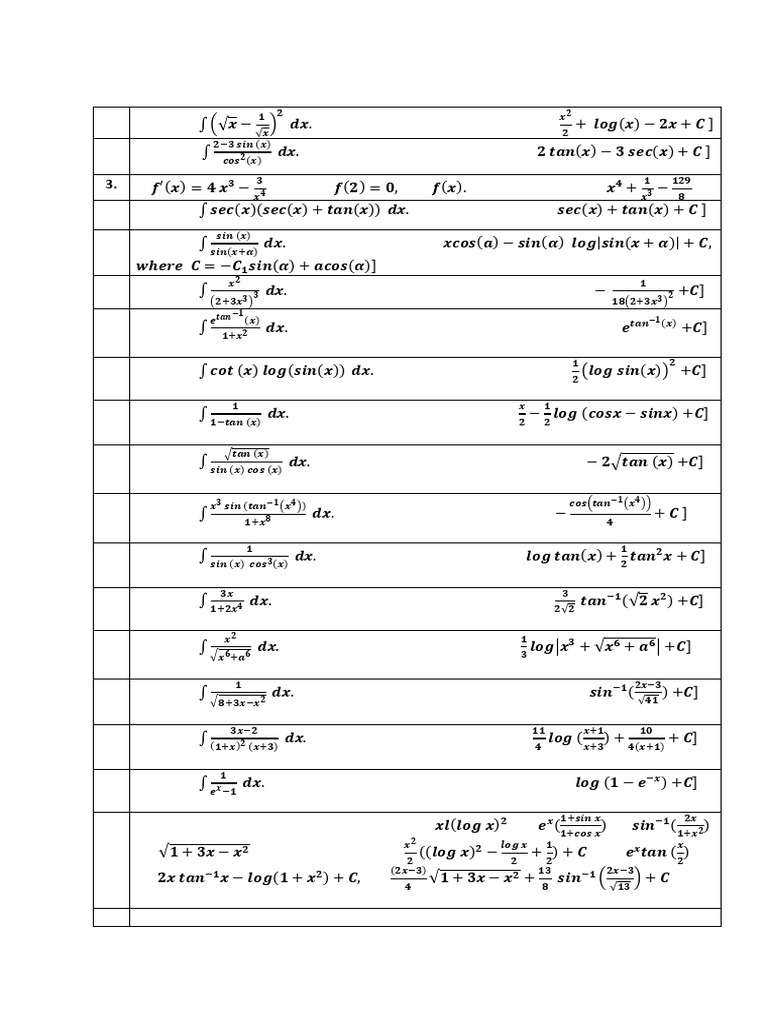 ∫(√x − 1/√x)² dx. x²/2 + log(x) − 2x + C ]
∫ (2−3 sin (x))/cos²(x) dx. 2 tan(x) − 3 sec(x) + C ]
3. f′(x) = 4 x³ − 3/x⁴ f(2) = 0, f(x). x⁴ + 1/x³ − 129/8
∫ sec(x)(sec(x) + tan(x)) dx. sec(x) + tan(x) + C ]
∫ sin (x)/sin(x+α) dx. xcos(a) − sin(α) log|sin(x + α)| + C,
where C = −C₁sin(α) + acos(α)]
∫ x²/(2+3x³)³ dx. − 1/18(2+3x³)² +C]
∫ e^tan⁻¹(x)/1+x² dx. e^tan⁻¹(x) +C]
∫ cot (x) log(sin(x)) dx. 1/2 (log sin(x))² +C]
∫ 1/(1−tan (x)) dx. x/2 − 1/2 log (cosx − sinx) +C]
∫ √tan (x)/sin (x) cos (x) dx. − 2√tan (x) +C]
∫ x³ sin (tan⁻¹(x⁴))/1+x⁸ dx. − cos(tan⁻¹(x⁴))/4 + C ]
∫ 1/sin (x) cos³(x) dx. log tan(x) + 1/2 tan²x + C]
∫ 3x/1+2x⁴ dx. 3/2√2 tan⁻¹(√2 x²) +C]
∫ x²/√(x⁶+a⁶) dx. 1/3 log|x³ + √(x⁶ + a⁶)| +C]
∫ 1/√(8+3x−x²) dx. sin⁻¹(2x−3/√41) +C]
∫ 3x−2/(1+x)² (x+3) dx. 11/4 log (x+1/x+3) + 10/4(x+1) + C]
∫ 1/eˣ−1 dx. log (1 − e⁻ˣ) +C]
xl(log x)² eˣ(1+sin x/1+cos x) sin⁻¹(2x/1+x²)
√(1 + 3x − x²) x²/2 ((log x)² − log x/2 + 1/2) + C eˣtan (x/2)
2x tan⁻¹x − log(1 + x²) + C, (2x−3)/4 √(1 + 3x − x²) + 13/8 sin⁻¹(2x−3/√13) + C